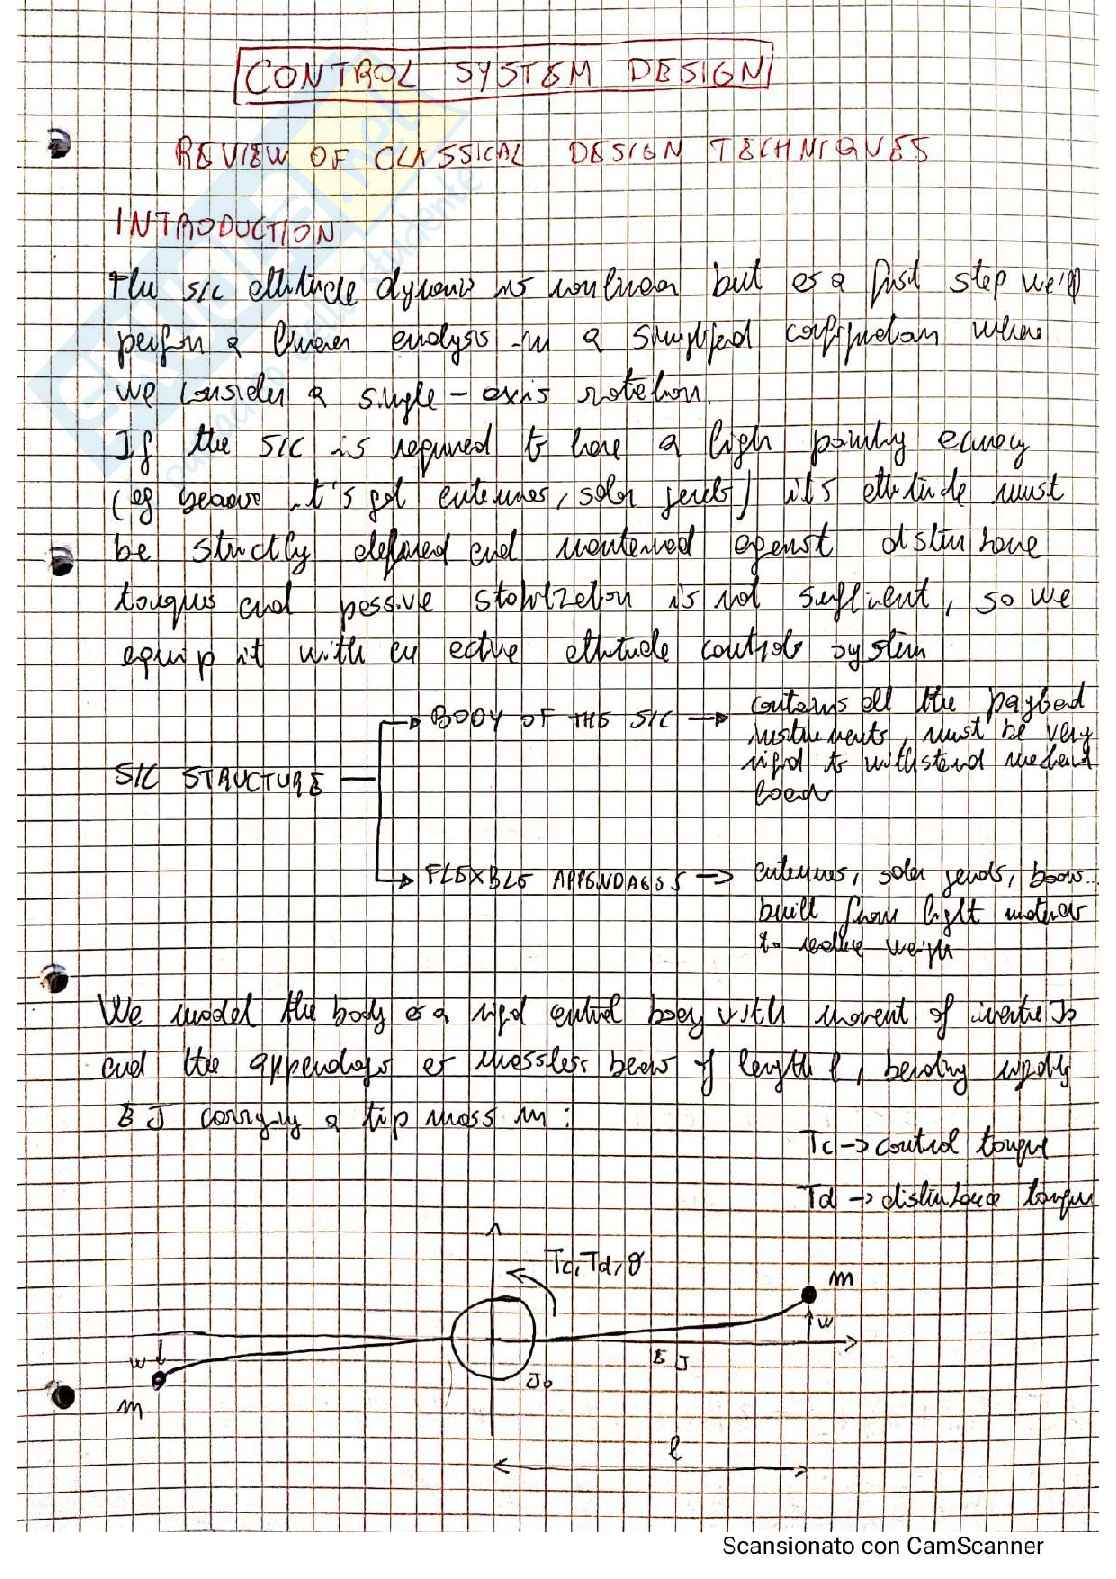 CONTROL SYSTEM DESIGN
REVIEW OF CLASSICAL DESIGN TECHNIQUES
INTRODUCTION
The S/C attitude dynamics is nonlinear but as a first step we'll
perform a linear analysis in a simplified configuration where
we consider a single-axis rotation.
If the S/C is required to have a high pointing accuracy
(eg because it's got antennas, solar panels) its attitude must
be strictly defined and maintained against disturbance
torques and passive stabilization is not sufficient, so we
equip it with an active attitude controls system
BODY OF THE S/C → contains all the payload
instruments, must be very
rigid to withstand mechanical
loads
S/C STRUCTURE
FLEXIBLE APPENDAGES → antennas, solar panels, booms..
built from light materials
to reduce weight
We model the body as a rigid central body with moment of inertia J0
and the appendages as massless beams of length l, bending rigidity
EJ carrying a tip mass m:
Tc → control torque
Td → disturbance torque
Tc, Td, θ
m
w
w
EJ
J0
m
l
Scansionato con CamScanner